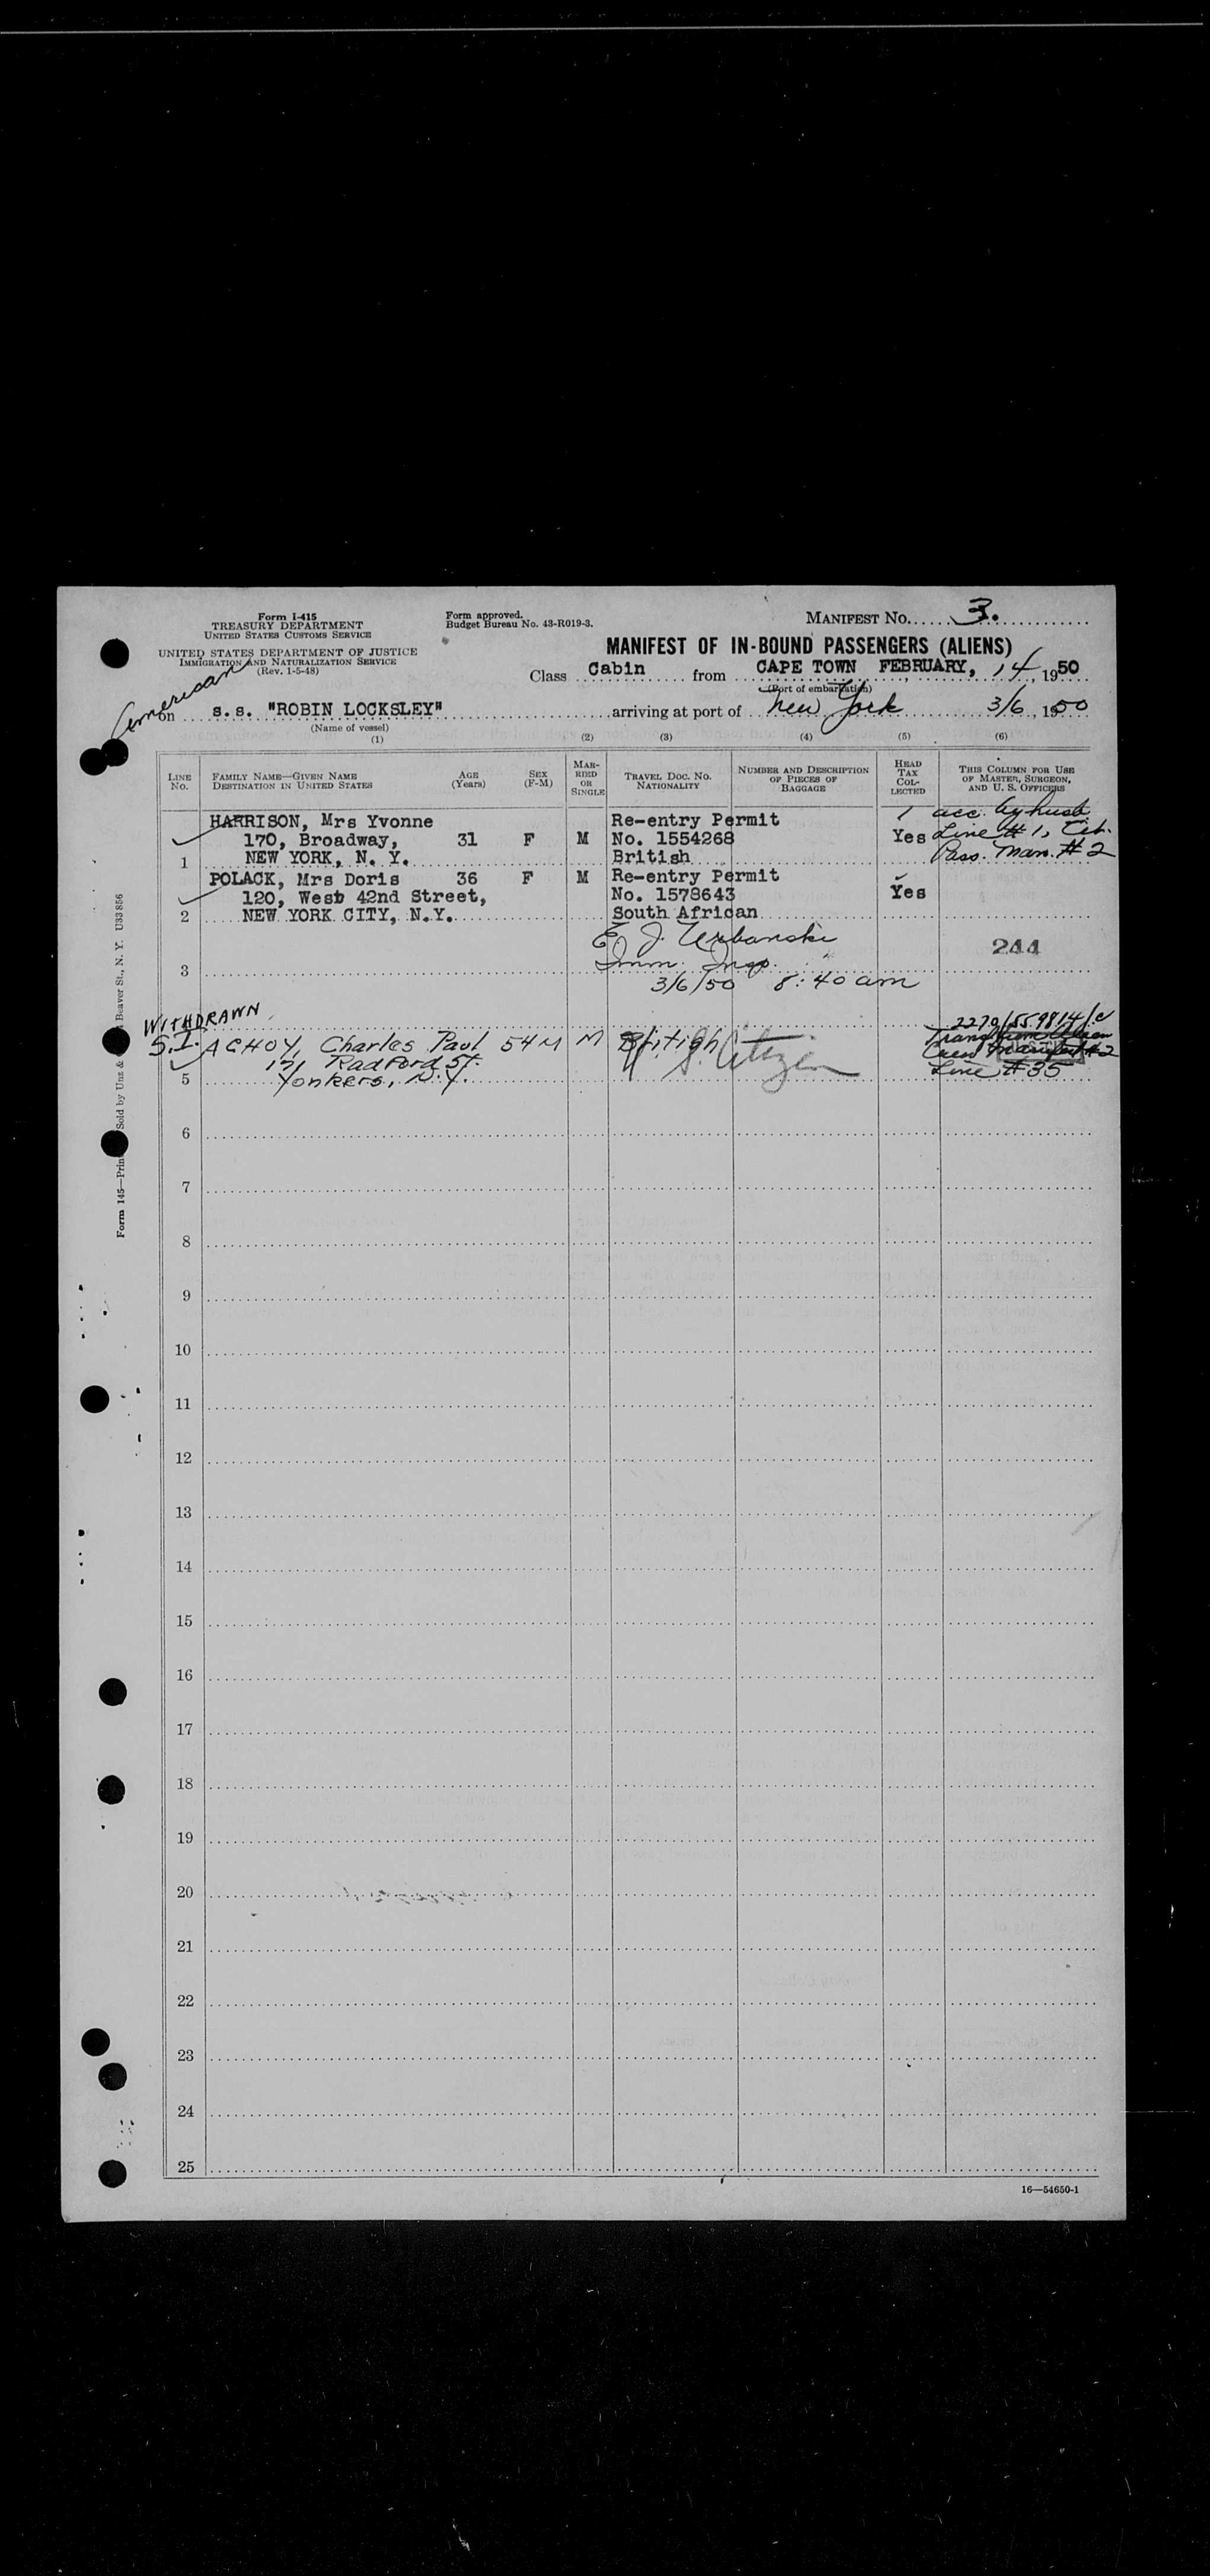 Form I-415
TREASURY DEPARTMENT
UNITED STATES CUSTOMS SERVICE
UNITED STATES DEPARTMENT OF JUSTICE
IMMIGRATION AND NATURALIZATION SERVICE
(Rev. 1-5-48)
Form approved.
Budget Bureau No. 43-R019-3.
MANIFEST No. 3.
MANIFEST OF IN-BOUND PASSENGERS (ALIENS)
Class Cabin from CAPE TOWN FEBRUARY, 14, 1950
(Port of embarkation)
American
on s.s. "ROBIN LOCKSLEY" arriving at port of New York 3/6, 1950
(Name of vessel)
(1) (2) (3) (4) (5) (6)
LINE No.
FAMILY NAME—GIVEN NAME
DESTINATION IN UNITED STATES
AGE (Years)
SEX (F-M)
MARRIED OR SINGLE
TRAVEL DOC. NO.
NATIONALITY
NUMBER AND DESCRIPTION OF PIECES OF BAGGAGE
HEAD TAX COLLECTED
THIS COLUMN FOR USE OF MASTER, SURGEON, AND U. S. OFFICERS
HARRISON, Mrs Yvonne Re-entry Permit acc. by husb.
170, Broadway, 31 F M No. 1554268 Yes Line # 1, Cit.
1 NEW YORK, N. Y. British Pass. Man. # 2
POLACK, Mrs Doris 36 F M Re-entry Permit
120, West 42nd Street, No. 1578643 Yes
2 NEW YORK CITY, N.Y. South African
E. J. Urbanski
Imm. Insp. 244
3
3/6/50 8:40 am
WITHDRAWN
2270/559814/c
S.I. ACHOY, Charles Paul 54 M M British U.S. Citizen
171 Radford St.
Crew Manifest #2
5 Yonkers, N.Y. Line # 35
6
7
8
9
10
11
12
13
14
15
16
17
18
19
20
21
22
23
24
25
16—54650-1
Form 145—Prin Sold by Unz & Beaver St., N. Y. U33856